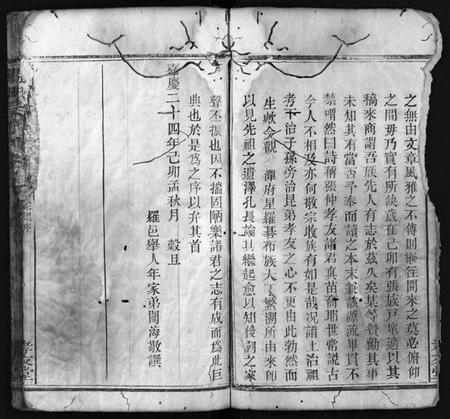 之無由文章風雅之不傳則繼往開來之莫必俯仰
之間毋乃實有所缺歲在己卯有張族戶單適以其
稿來商謂吾族先人有志於茲久矣某等贊勷其事
未知其有當否予奉而讀之本末兼該源流畢貫不
禁喟然曰詩稱張仲孝友諸君真苗裔耶世嘗說古
今人不相及亦何敬宗收族有如是哉况諸上治祖
考下治子孫旁治昆弟孝友之心不更由此勃然而
生歟今觀 譚府星羅碁布族大丁繁溯所由來即
以見先祖之遺澤孔長論其繼起愈以知後嗣之家
聲丕振也因不揣固陋樂諸君之志有成而為此巨
典也於是為之序以弁其首
嘉慶二十四年己卯孟秋月 穀旦
羅邑舉人年家弟關海敬譔
孝友堂